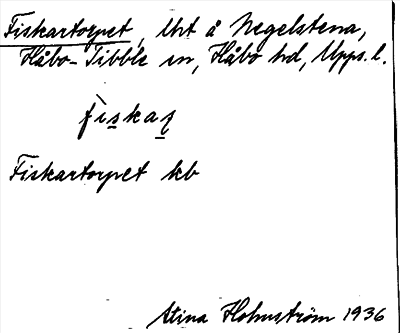 Fiskartorpet, lht å Negelstena,
Håbo-Tibble sn, Håbo hd, Upps. l.
fiskaʈ
Fiskartorpet kb
Stina Holmström 1936